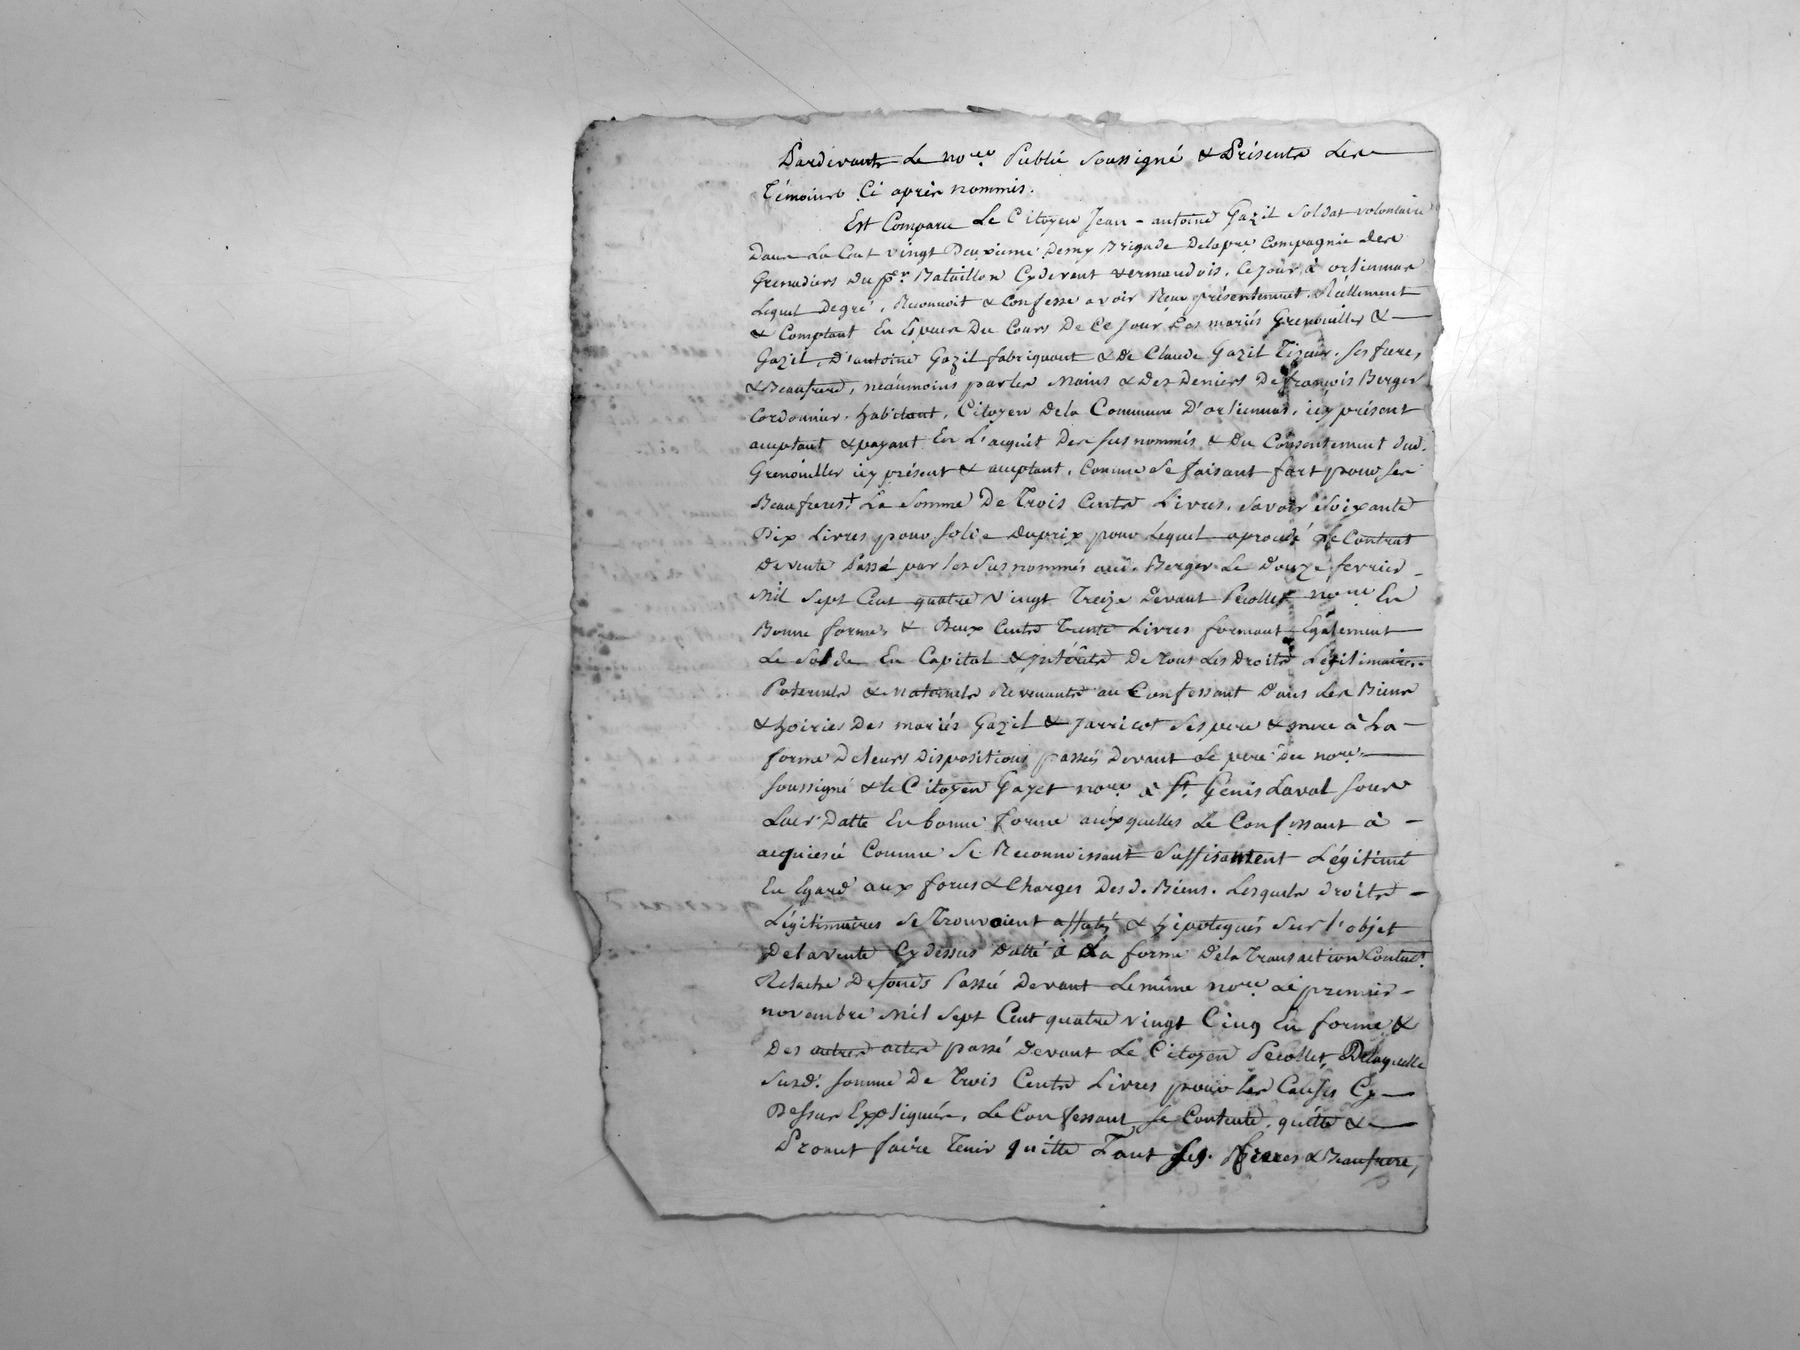 Pardevant Le no.re Publié Soussigné & Présents Les
Témoins Ci après nommés.
Est Comparu Le Citoyen Jean-antoine Gazil Soldat volontaire
Dans La Cent vingt Deuxieme Demy Brigade Delapre Compagnie des
Grenadiers Du p.er Bataillon Cydevent vermandois, Ce Jour à orliennas
Lequel Degré, Reconnoit & Confesse avoir Reçu présentement, Réellement
& Comptant En Espèces Du Cours De Ce Jour Des mariés Grenouiller &
Gazil, D'antoine Gazil fabriquant & De Claude Gazil Tizeur, Ses freres,
& Beaufrere, neaúmoins par les Mains & Des Deniers De françois Berger
Cordonnier, habitant, Citoyen dela Commune D'orliennas, icy présent
acceptant & payant En L'acquit Des susnommés & Du Consentement dud.
Grenouiller icy présent & acceptant, Comme Se faisant fort pour Ses
Beaufreres + La Somme De Trois Cents Livres, Savoir Soixante
Dix Livres pour Solde Duprix pour Lequel aprocédé Le Contrat
De vente Passé par les Susnommés aud. Berger Le Douze fevrier
Mil Sept Cent quatre Vingt Treize Devant Pecollet no.re En
Bonne forme, & Deux Cents Trente Livres formant Egalement
Le Solde En Capital & intérêts De Tous Les Droits Légitimaires
Paternels & Maternels Revenants au Confessant Dans Les Biens
& hoiries Des mariés Gazil & Jarricot Ses pere & mere à La
forme Deleurs Dispositions passées Devant Le pere Du no.re
Soussigné & le Citoyen Gayet no.re à S.t Genis Laval Sous
Leur Datte En bonne forme auxquelles Le Confessant à
acquiescé Comme Se Reconnoissant Suffisantent Légitimé
En Egard aux forces & Charges Des d. Biens. Lesquels droits
Légitimaires Se Trouvoient affectés & hipotequés Sur l'objet
Delavente Cydessus Datté à La forme Dela Transaction Conten.t
Relache Defonds Passée Devant Lemême no.re Le premier
novembre Mil Sept Cent quatre vingt Cinq En forme &
Des autres actes passé Devant Le Citoyen Pecollet, Delaquelle
Susd. Somme De Trois Cents Livres pour les Causes Cy
Dessus Expliquées, Le Confessant Se Contente, quitte &
Promet faire Tenir quitte Tant Ses. freres & Beaufrere,